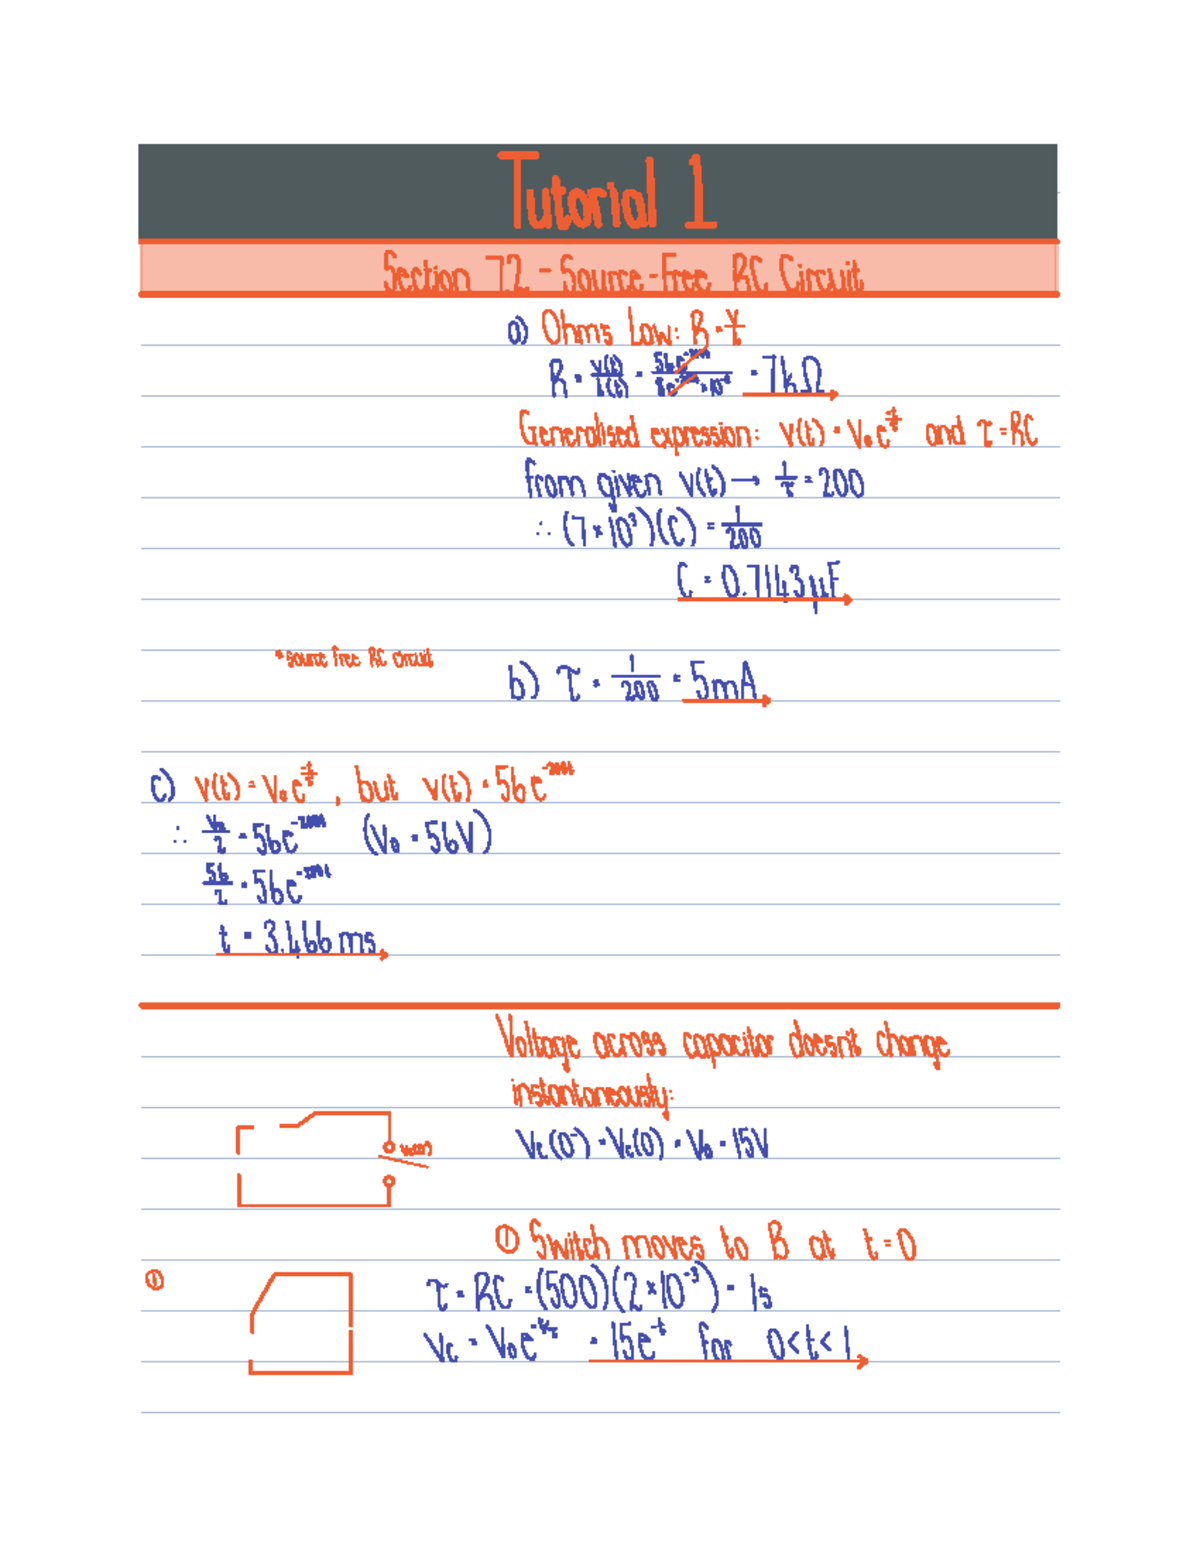 Tutorial 1
Section 7.2 - Source-Free RC Circuit
a) Ohms Law: R = V/I
R = v(t)/i(t) = 56e^-200t/8e^-200t × 10^-3 = 7kΩ
Generalised expression: v(t) = V₀e^-t/τ and τ = RC
from given v(t) → 1/τ = 200
∴ (7×10³)(C) = 1/200
C = 0.7143μF
* Source free RC circuit
b) τ = 1/200 = 5mA
c) v(t) = V₀e^-t/τ, but v(t) = 56e^-200t
∴ V₀/2 = 56e^-200t (V₀ = 56V)
56/2 = 56e^-200t
t = 3.466ms
Voltage across capacitor doesn't change
instantaneously:
Vc(0⁻) = Vc(0) = V₀ = 15V
① Switch moves to B at t=0
①
τ = RC = (500)(2×10⁻³) = 1s
Vc = V₀e^-t/τ = 15e^-t for 0<t<1